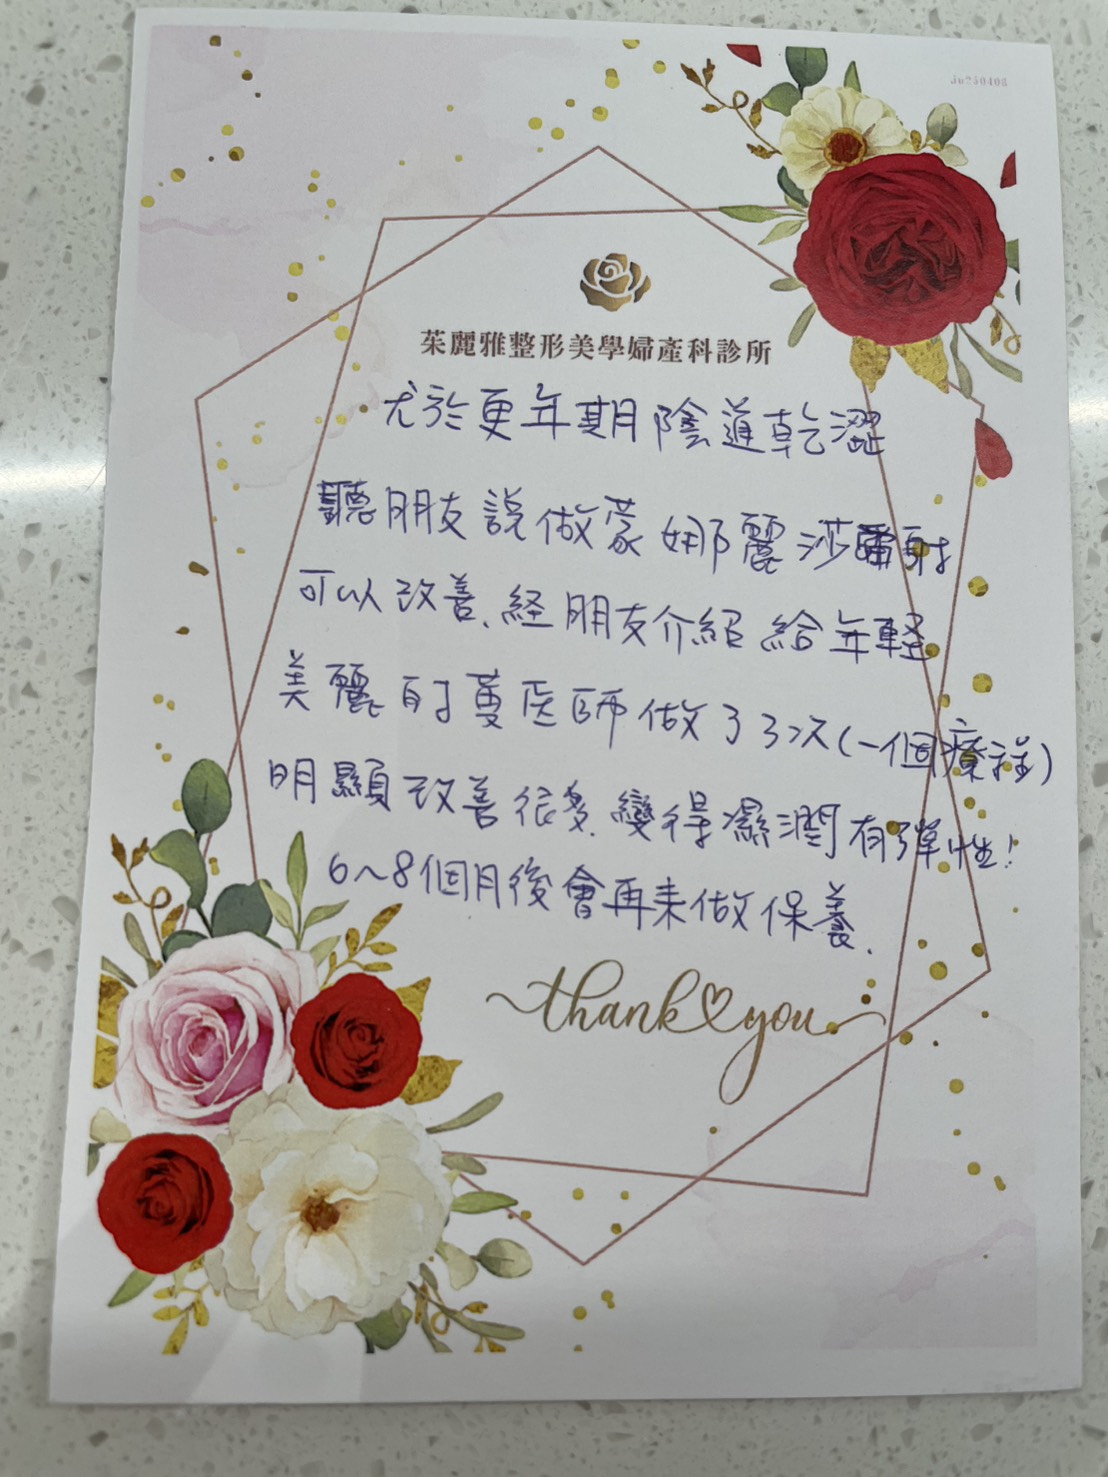 Ju250408
茱麗雅整形美學婦產科診所
尤於更年期陰道乾澀
聽朋友說做蒙娜麗莎雷射
可以改善.經朋友介紹給年輕
美麗的蔓医師做了3次(一個療程)
明顯改善很多.變得濕潤有彈性!
6~8個月後會再来做保養.
thank you